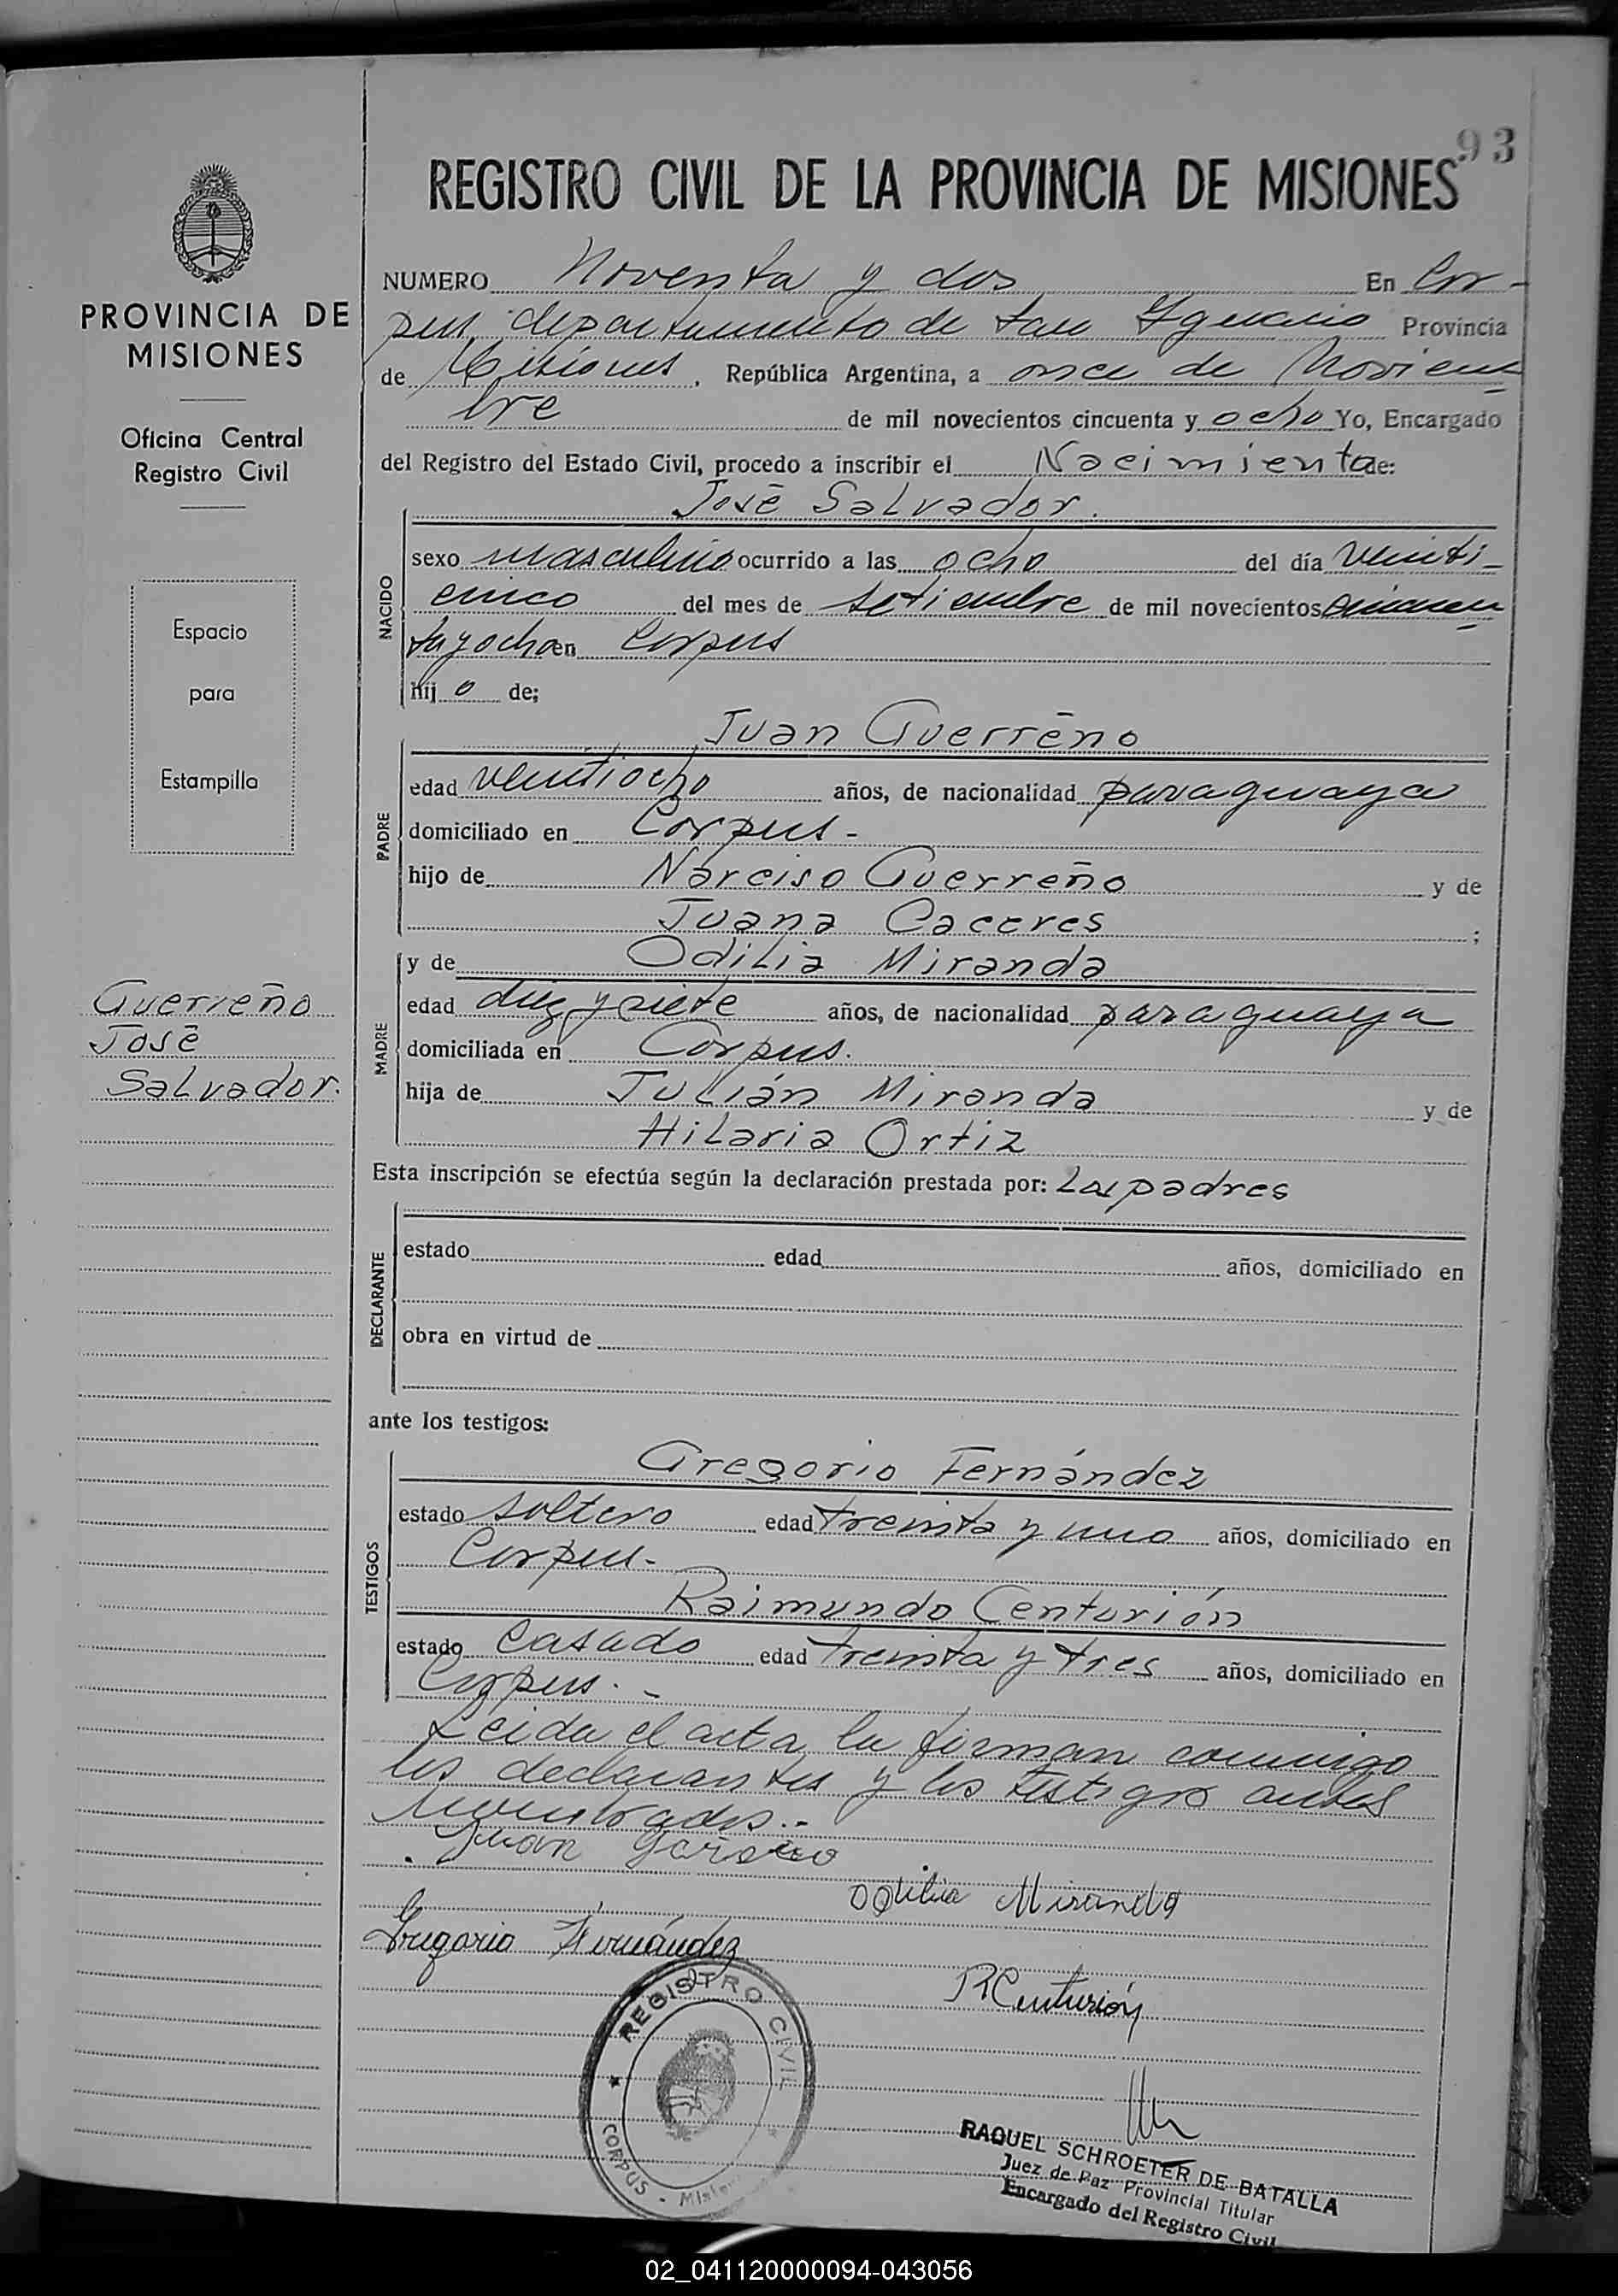 93
REGISTRO CIVIL DE LA PROVINCIA DE MISIONES
PROVINCIA DE
MISIONES
Oficina Central
Registro Civil
Espacio
para
Estampilla
Guerreño
José
Salvador.
NUMERO Noventa y dos En Cor-
pus departamento de San Ignacio Provincia
de Misiones, República Argentina, a once de Noviem
bre de mil novecientos cincuenta y ocho Yo, Encargado
del Registro del Estado Civil, procedo a inscribir el Nacimiento de:
José Salvador.
NACIDO
sexo masculino ocurrido a las ocho del día veinti-
cinco del mes de setiembre de mil novecientos cincuen
ta y ocho en Corpus
hijo de;
Juan Guerreño
PADRE
edad veintiocho años, de nacionalidad paraguaya
domiciliado en Corpus-
hijo de Narciso Guerreño y de
Juana Caceres ;
y de Odilia Miranda
MADRE
edad diez y siete años, de nacionalidad paraguaya
domiciliada en Corpus.
hija de Julián Miranda y de
Hilaria Ortiz
Esta inscripción se efectúa según la declaración prestada por: Los padres
DECLARANTE
estado edad años, domiciliado en
obra en virtud de
ante los testigos:
Gregorio Fernández
TESTIGOS
estado soltero edad treinta y uno años, domiciliado en
Corpus-
Raimundo Centurión
estado casado edad treinta y tres años, domiciliado en
Corpus.-
Leida el acta la firman conmigo
los declarantes y los testigos antes
nombrados.-
Juan
Odilia Miranda
Gregorio Fernández
R Centurión
REGISTRO CIVIL
CORPUS - Misiones
RAQUEL SCHROETER DE BATALLA
Juez de Paz Provincial Titular
Encargado del Registro Civil
02_041120000094-043056